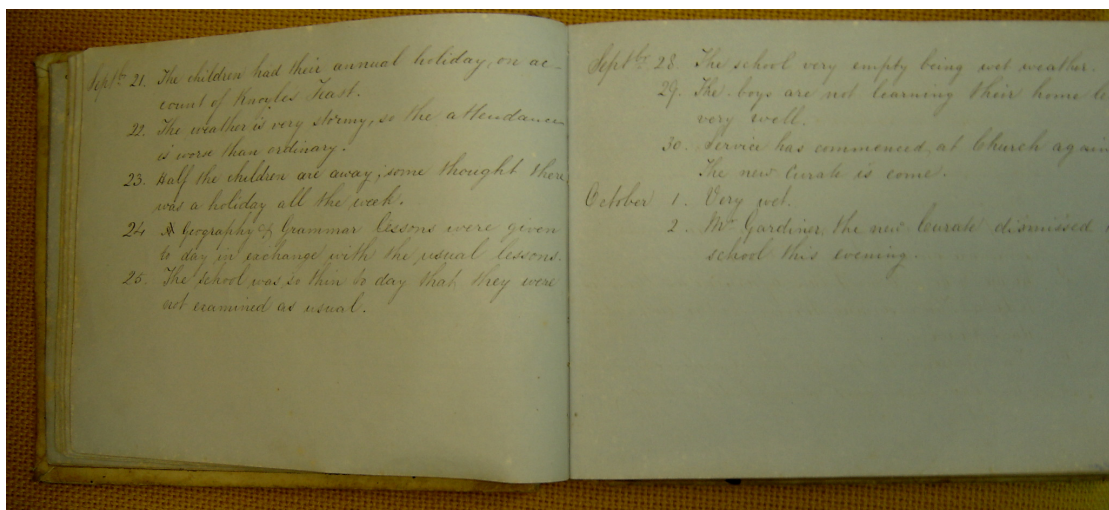 Septbr 21. The children had their annual holiday, on ac-
count of Knoyle Feast.
22. The weather is very stormy, so the attendance
is worse than ordinary.
23. Half the children are away; some thought there
was a holiday all the week.
24 Geography & Grammar lessons were given
to day in exchange with the usual lessons.
25. The school was so thin to day that they were
not examined as usual.
Septbr 28 The school very empty being wet weather.
29. The boys are not learning their home le
very well.
30. Service has commenced at Church again
The new Curate is come.
October 1. Very wet.
2. Mr Gardiner, the new Curate dismissed
school this evening.